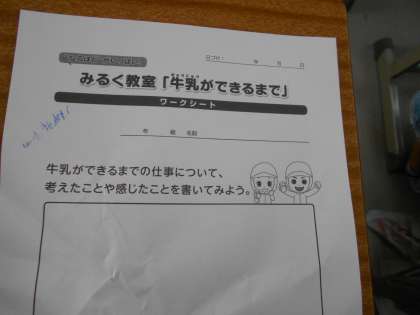 日づけ： 年 月 日
みるく教室「牛乳ができるまで」
ワークシート
年 組 名前
牛乳ができるまでの仕事について、
考えたことや感じたことを書いてみよう。